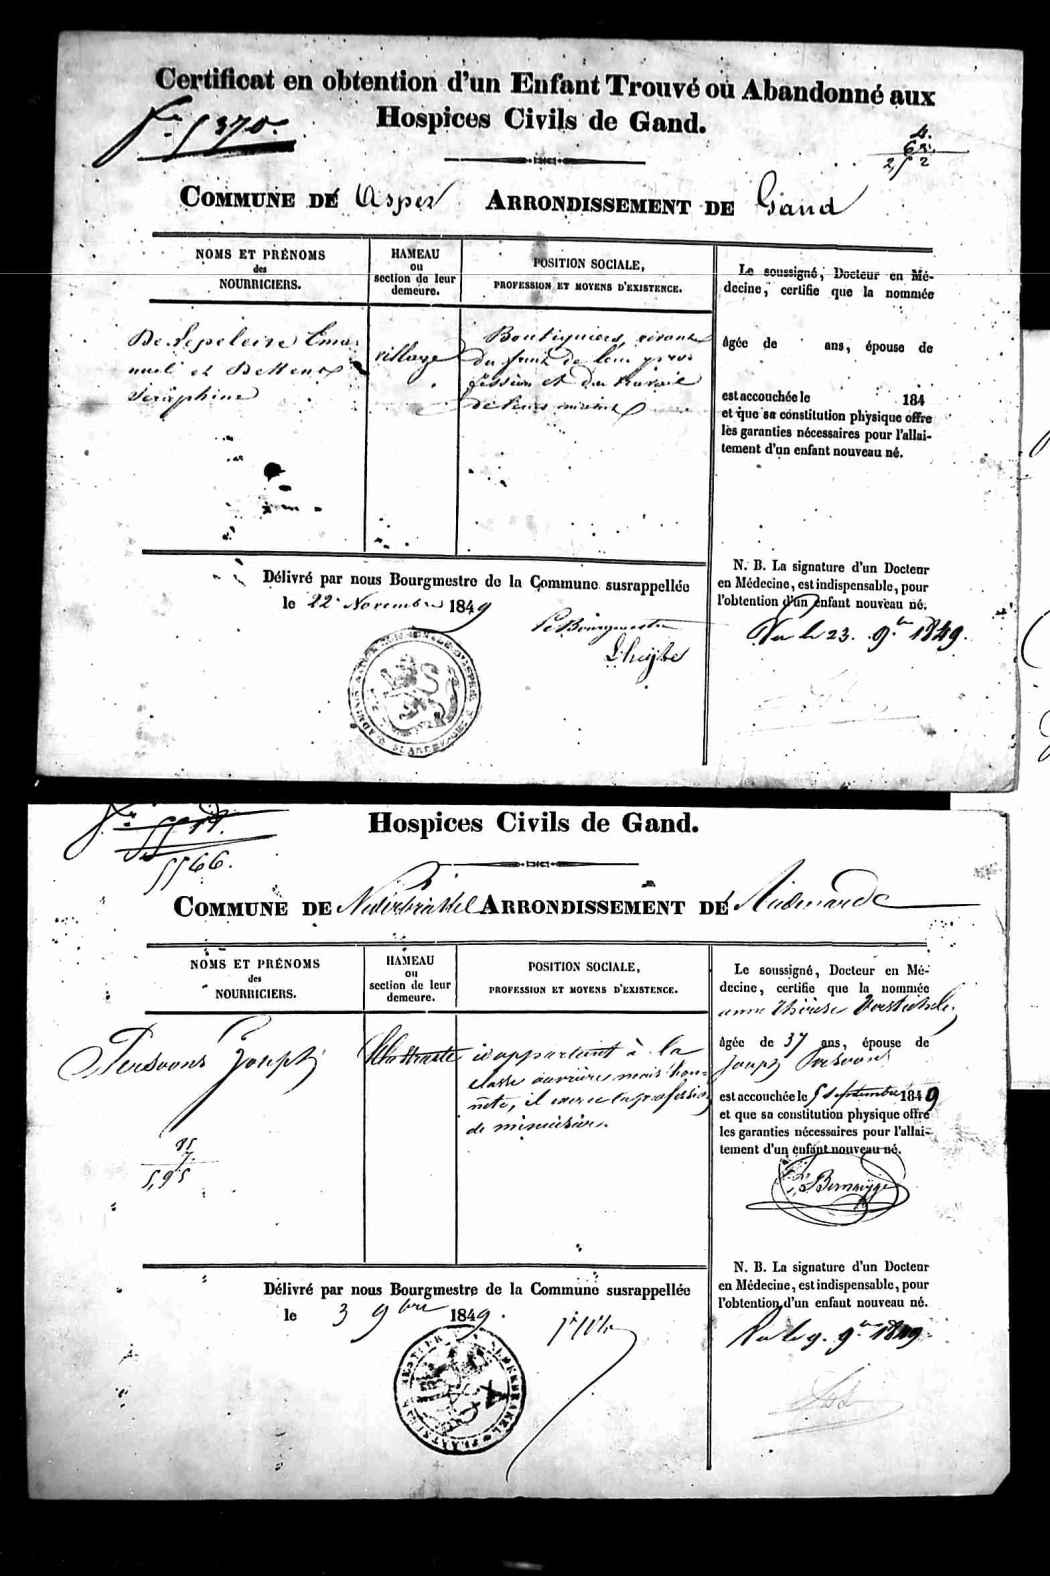 Certificat en obtention d'un Enfant Trouvé ou Abandonné aux
Hospices Civils de Gand.
5370.
COMMUNE DE Asper ARRONDISSEMENT DE Gand
NOMS ET PRÉNOMS
des
NOURRICIERS.
HAMEAU
ou
section de leur
demeure.
POSITION SOCIALE,
PROFESSION ET MOYENS D'EXISTENCE.
De Lepeleire Ema-
nuel et
Séraphine
village
Boutiquiers, vivant
du fruit de leur pro-
fession et du travail
de leurs mains
Le soussigné, Docteur en Mé-
decine, certifie que la nommée
âgée de ans, épouse de
est accouchée le 184
et que sa constitution physique offre
les garanties nécessaires pour l'allai-
tement d'un enfant nouveau né.
N. B. La signature d'un Docteur
en Médecine, est indispensable, pour
l'obtention d'un enfant nouveau né.
Vu le 23. 9bre 1849.
Délivré par nous Bourgmestre de la Commune susrappellée
le 22 Novembre 1849
Le Bourgmestre
Hospices Civils de Gand.
5566.
COMMUNE DE Nederbrakel ARRONDISSEMENT DE Audenarde
NOMS ET PRÉNOMS
des
NOURRICIERS.
HAMEAU
ou
section de leur
demeure.
POSITION SOCIALE,
PROFESSION ET MOYENS D'EXISTENCE.
Persoons Joseph
il appartient à la
classe ouvrière mais hon-
nête, il exerce la profession
de menuisier.
85
7.
5,95
Le soussigné, Docteur en Mé-
decine, certifie que la nommée
anne Thérèse
âgée de 37 ans, épouse de
Joseph Persoons
est accouchée le 5 septembre 1849
et que sa constitution physique offre
les garanties nécessaires pour l'allai-
tement d'un enfant nouveau né.
N. B. La signature d'un Docteur
en Médecine, est indispensable, pour
l'obtention d'un enfant nouveau né.
Vu le 9. 9bre 1849
Délivré par nous Bourgmestre de la Commune susrappellée
le 3 9bre 1849.